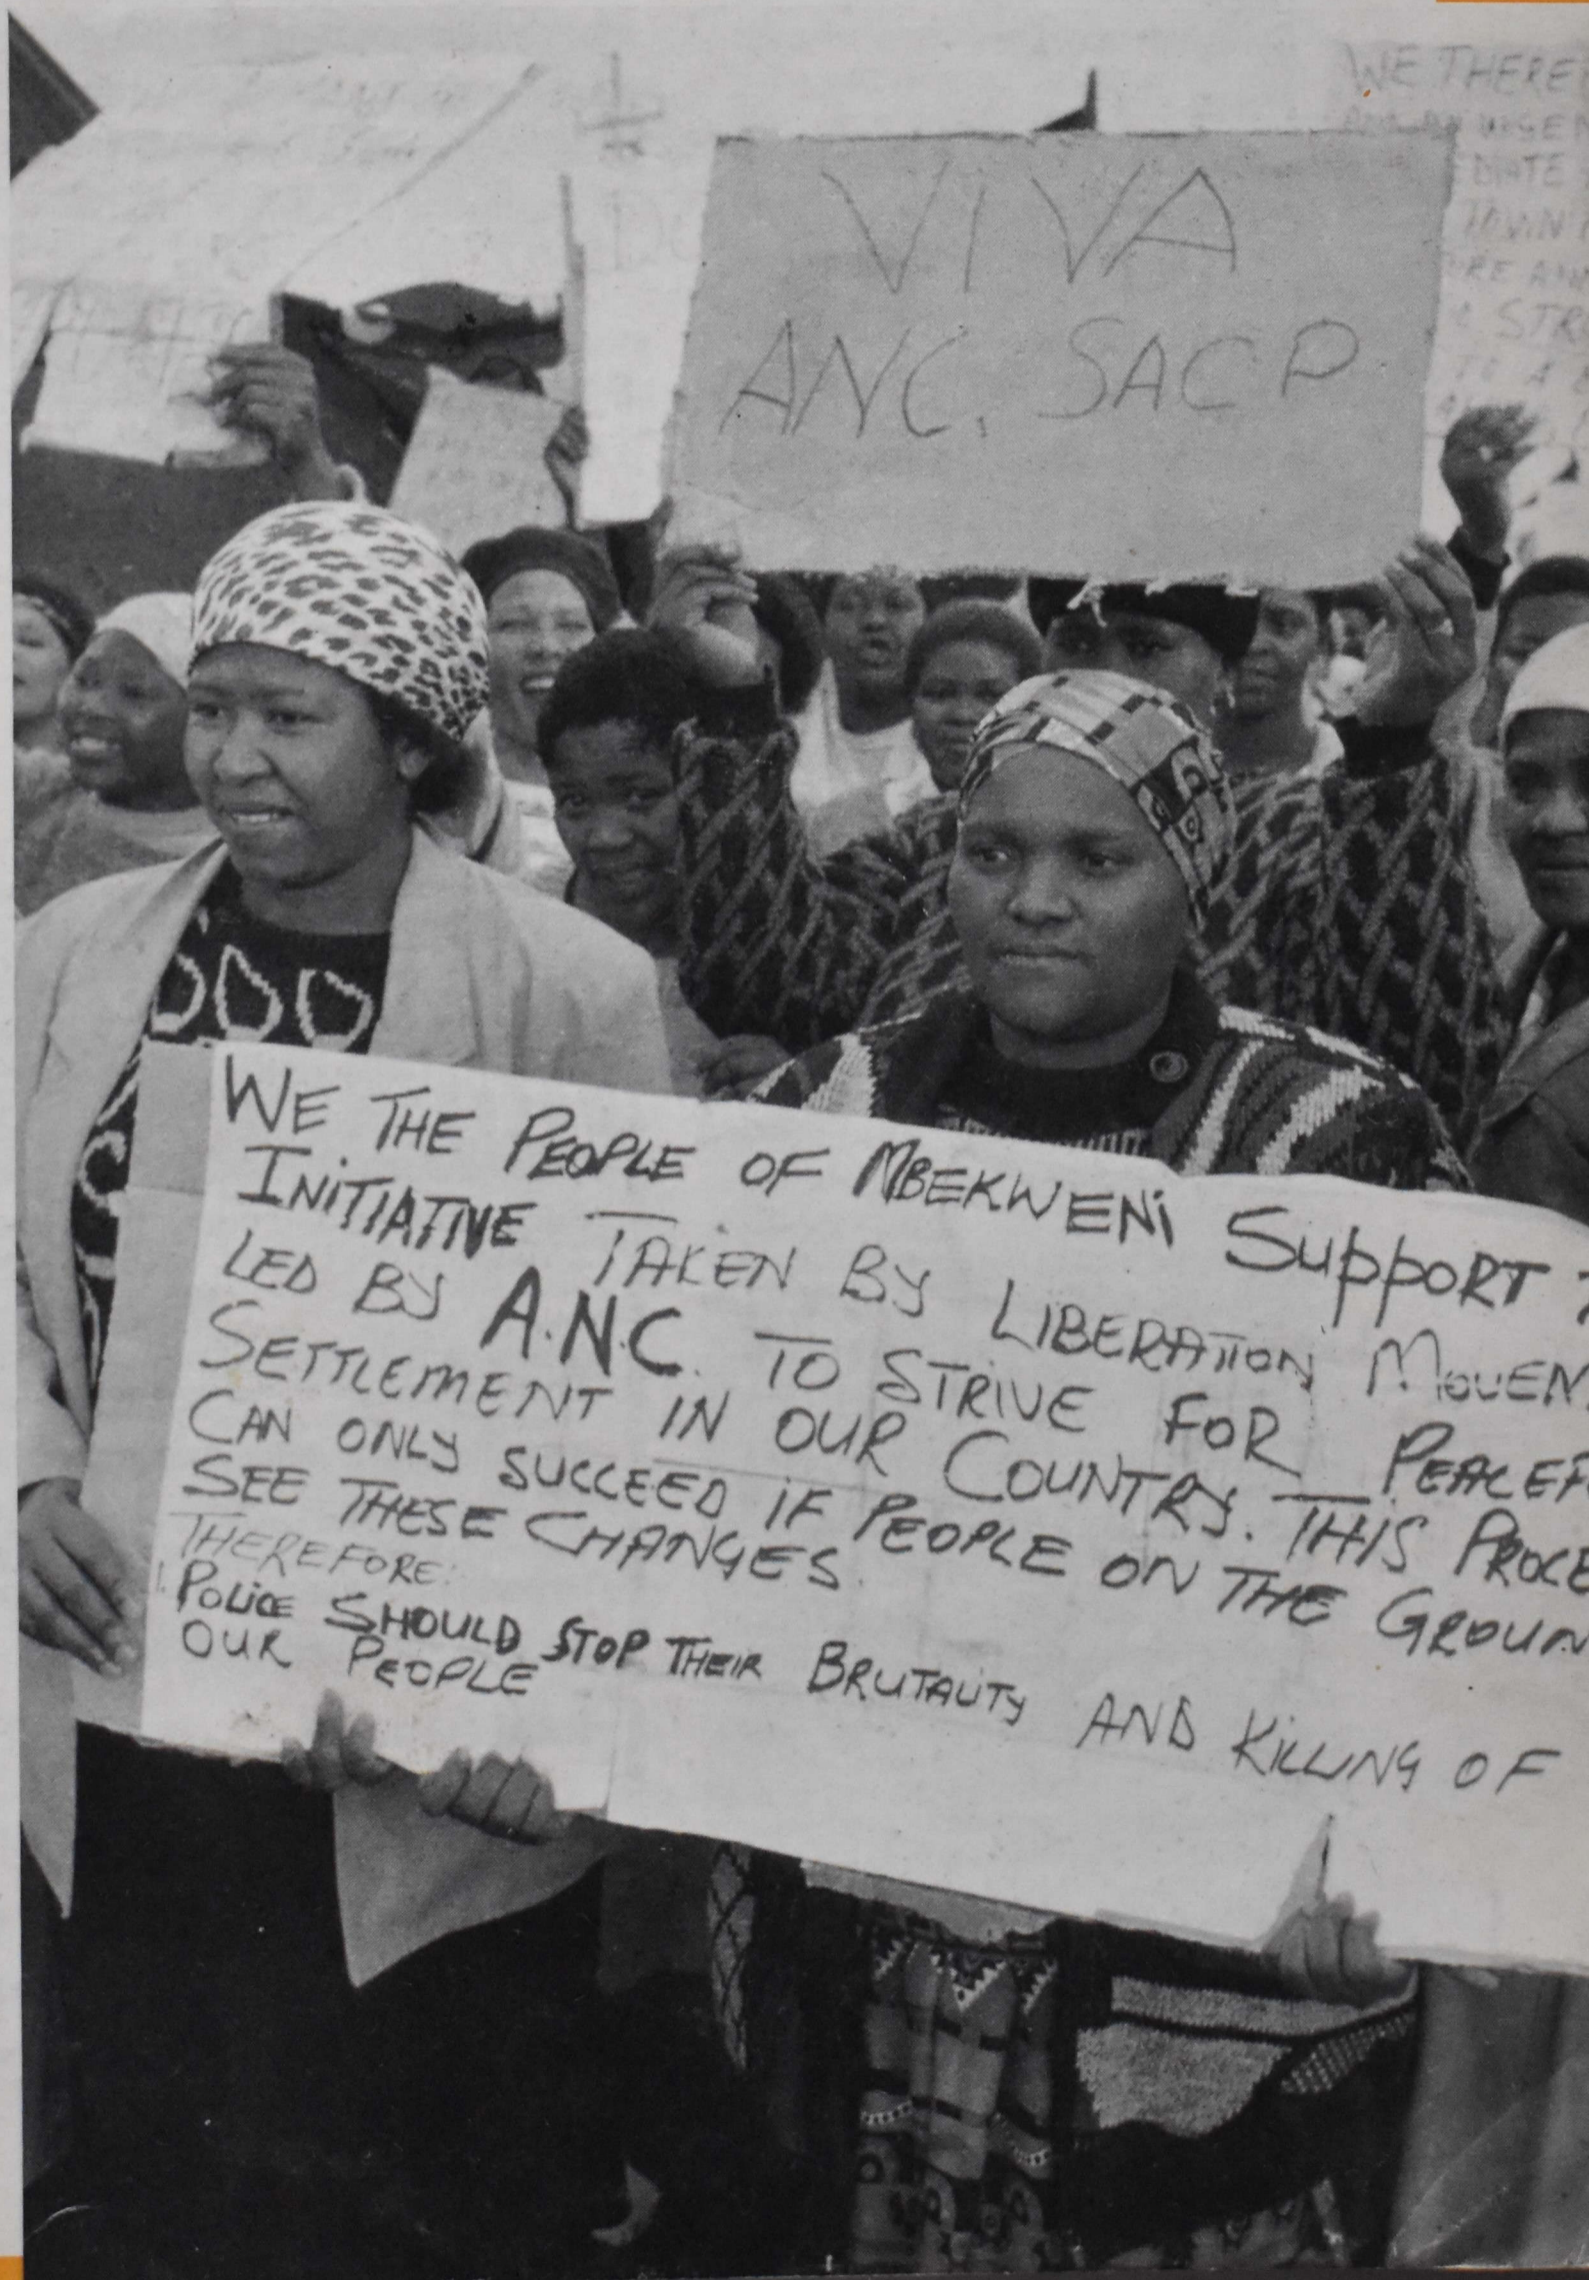 WE THERE
EDIATE
STR
TO A
VIVA
ANC. SACP
WE THE PEOPLE OF MBEKWENI SUPPORT
INITIATIVE TAKEN BY LIBERATION MOVEM
LED BY A.N.C. TO STRIVE FOR PEACEF
SETTLEMENT IN OUR COUNTRY. THIS PROCE
CAN ONLY SUCCEED IF PEOPLE ON THE GROUN
SEE THESE CHANGES.
THEREFORE:
1. POLICE SHOULD STOP THEIR BRUTALITY AND KILLING OF
OUR PEOPLE